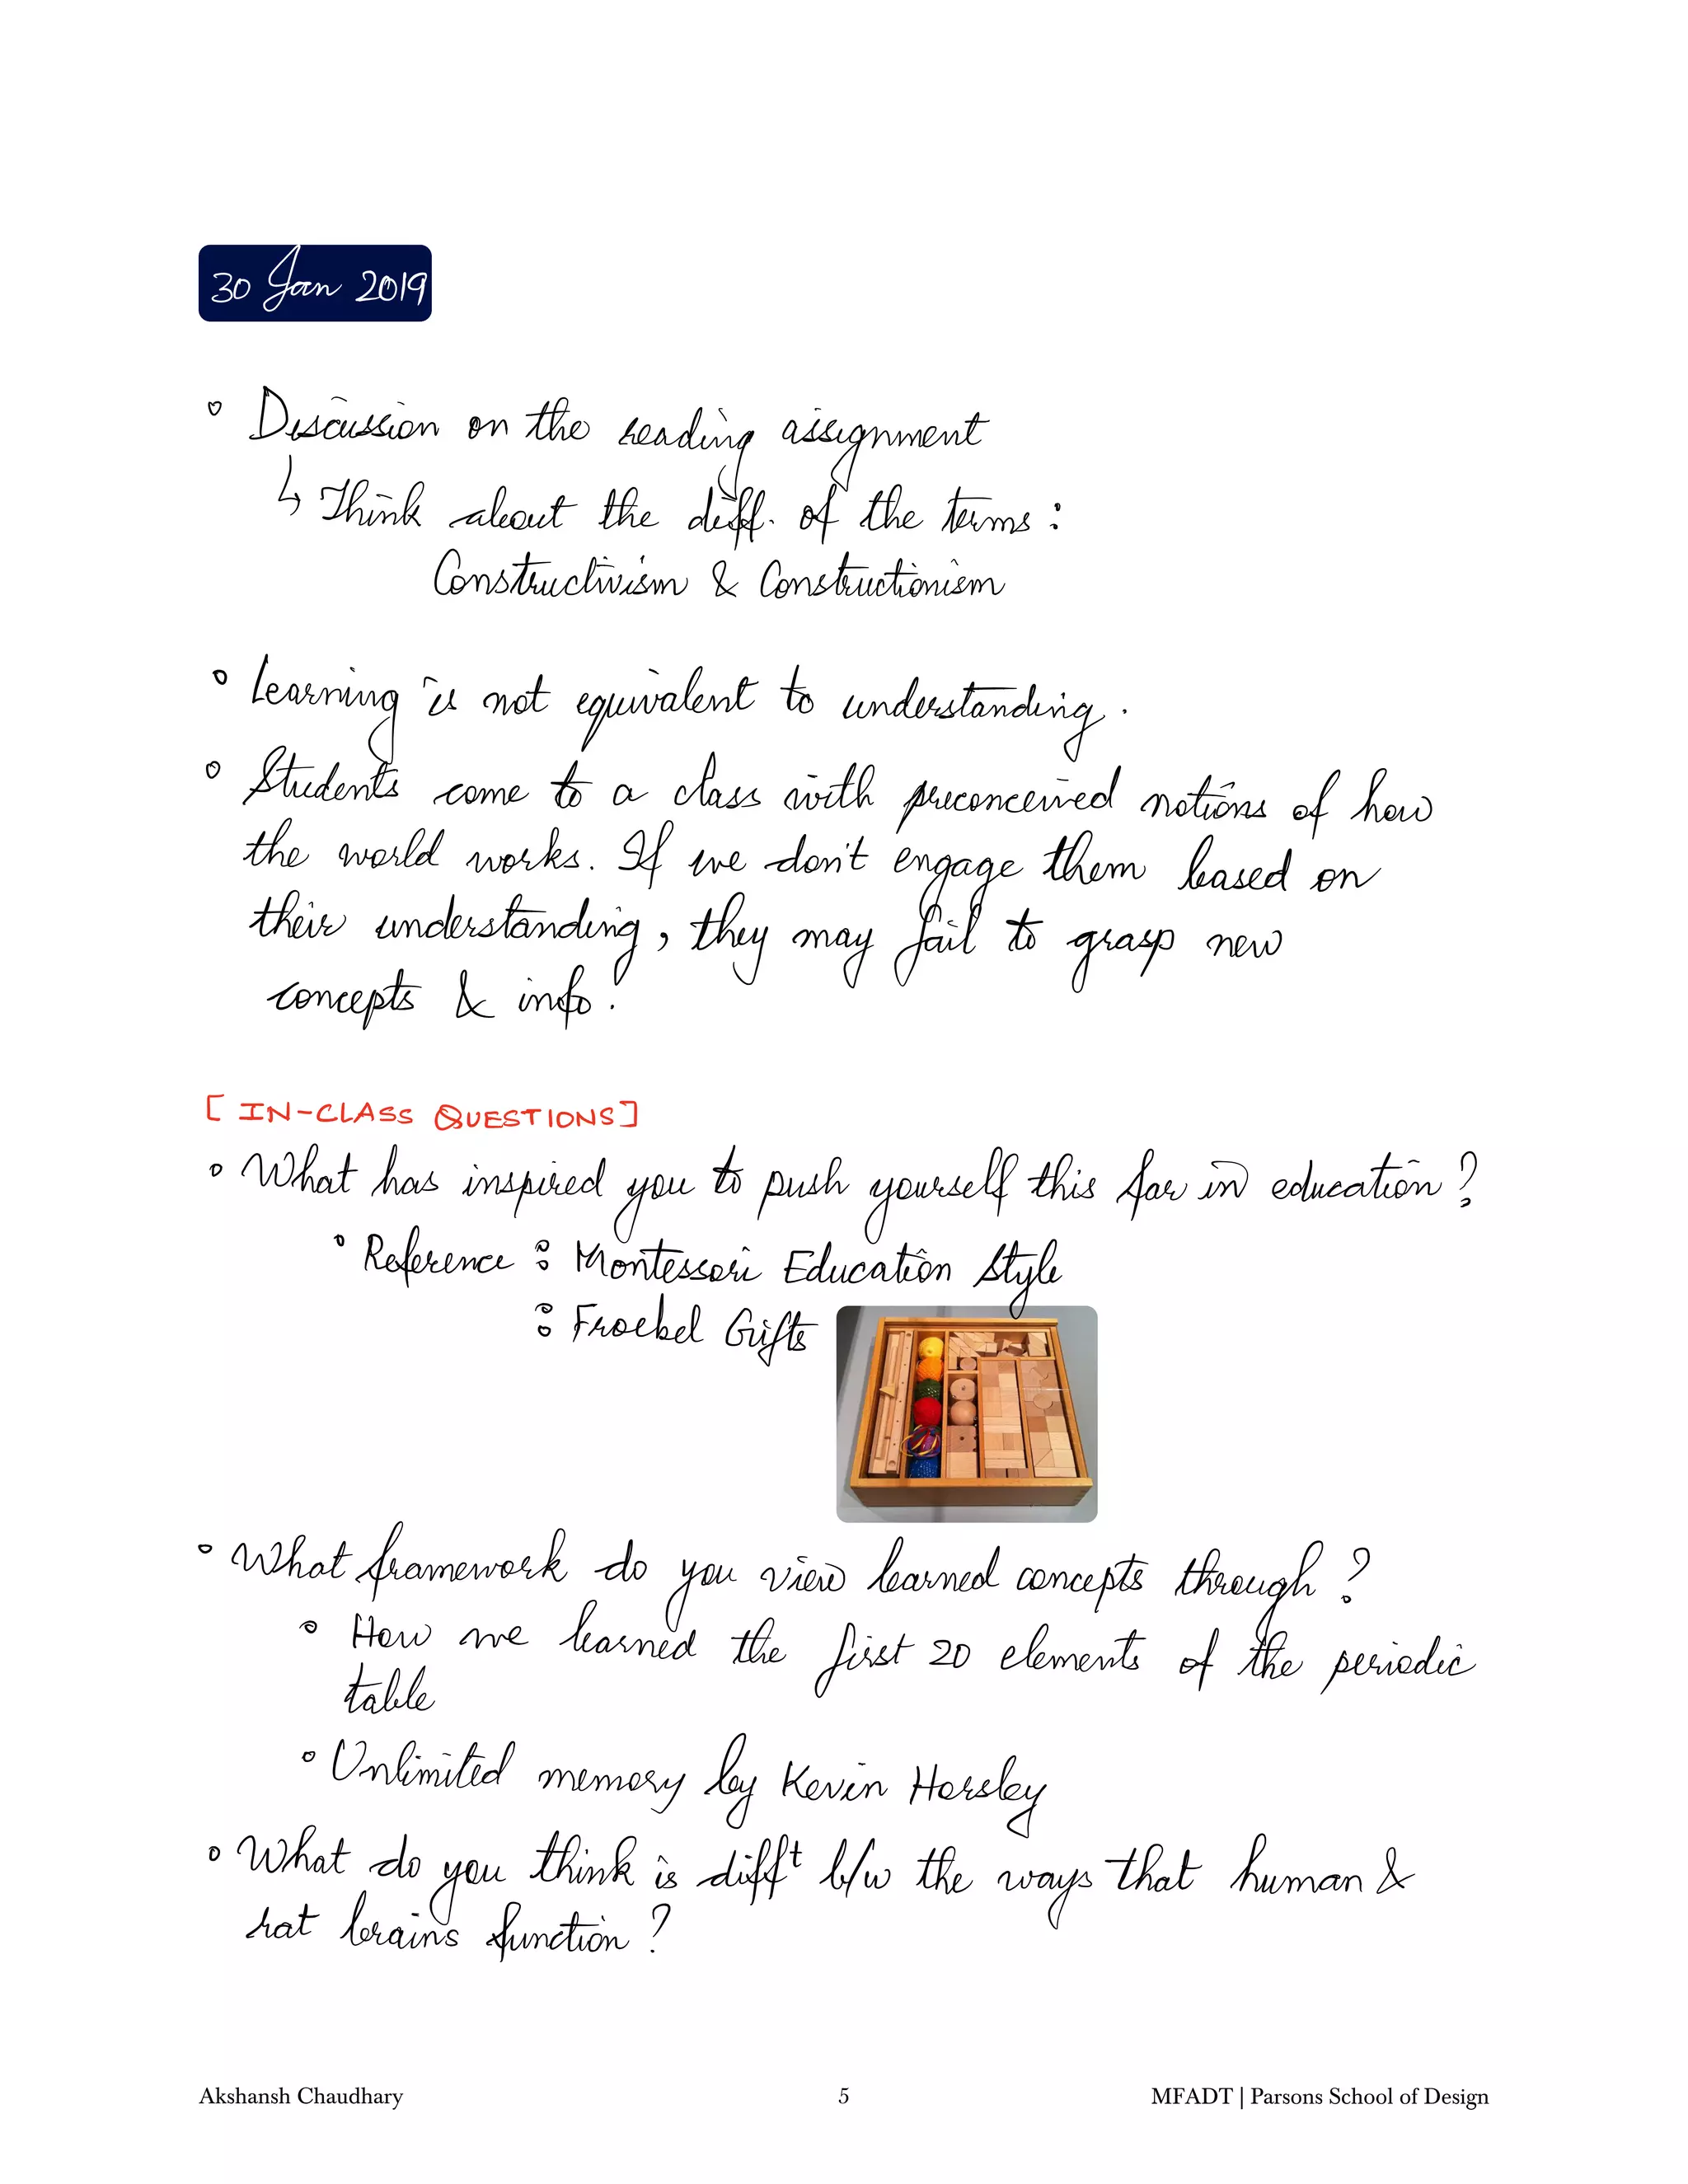 30 Jan 2019
Discussion on the reading assignment
↳ Think about the diff. of the terms:
Constructivism & Constructionism
Learning is not equivalent to understanding.
Students come to a class with preconceived notions of how
the world works. If we don't engage them based on
their understanding, they may fail to grasp new
concepts & info.
[IN-CLASS QUESTIONS]
What has inspired you to push yourself this far in education?
Reference : Montessori Education Style
: Froebel Gifts
What framework do you view learned concepts through?
How we learned the first 20 elements of the periodic
table
Unlimited memory by Kevin Horsley
What do you think is diff^t b/w the ways that human &
rat brains function?
Akshansh Chaudhary 5 MFADT | Parsons School of Design